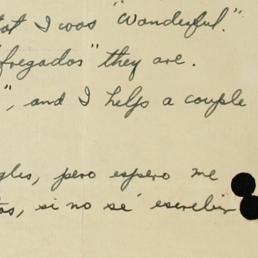 I was "Wonderful."
fregados" they are.
", and I helps a couple
pero espero me
si no sé escribir